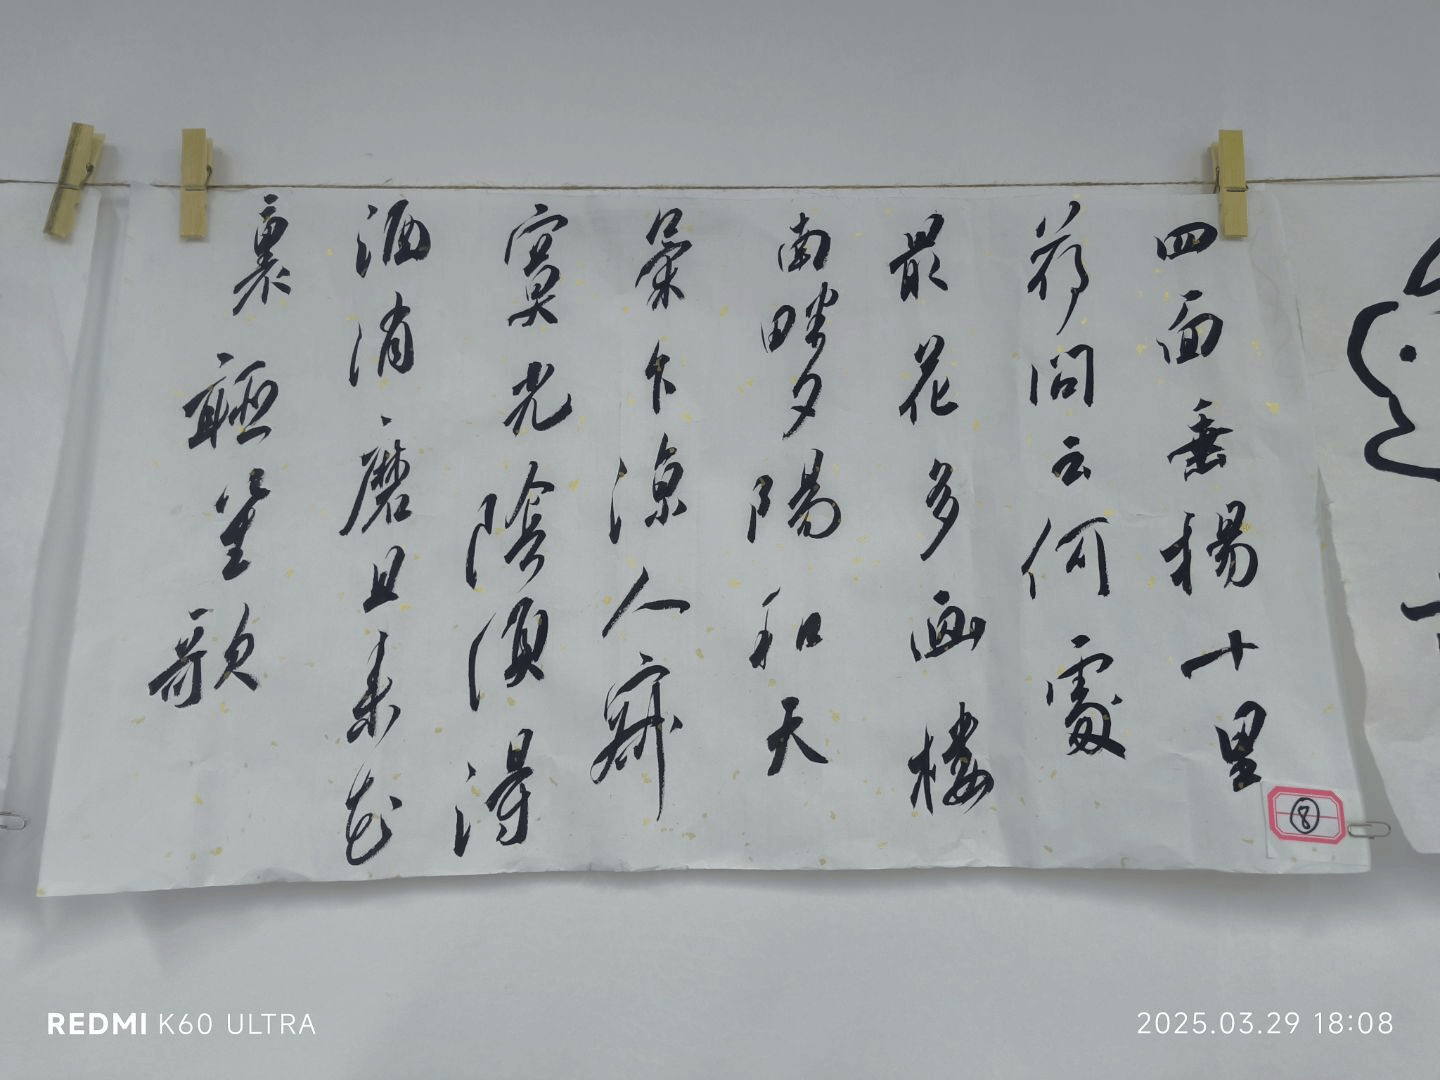 四面垂楊十里
荷問云何處
最花多画楼
南畔夕陽和天
氣乍涼人寂
寞光陰須得
酒消磨且来花
裏聽笙歌
⑧
REDMI K60 ULTRA
2025.03.29 18:08